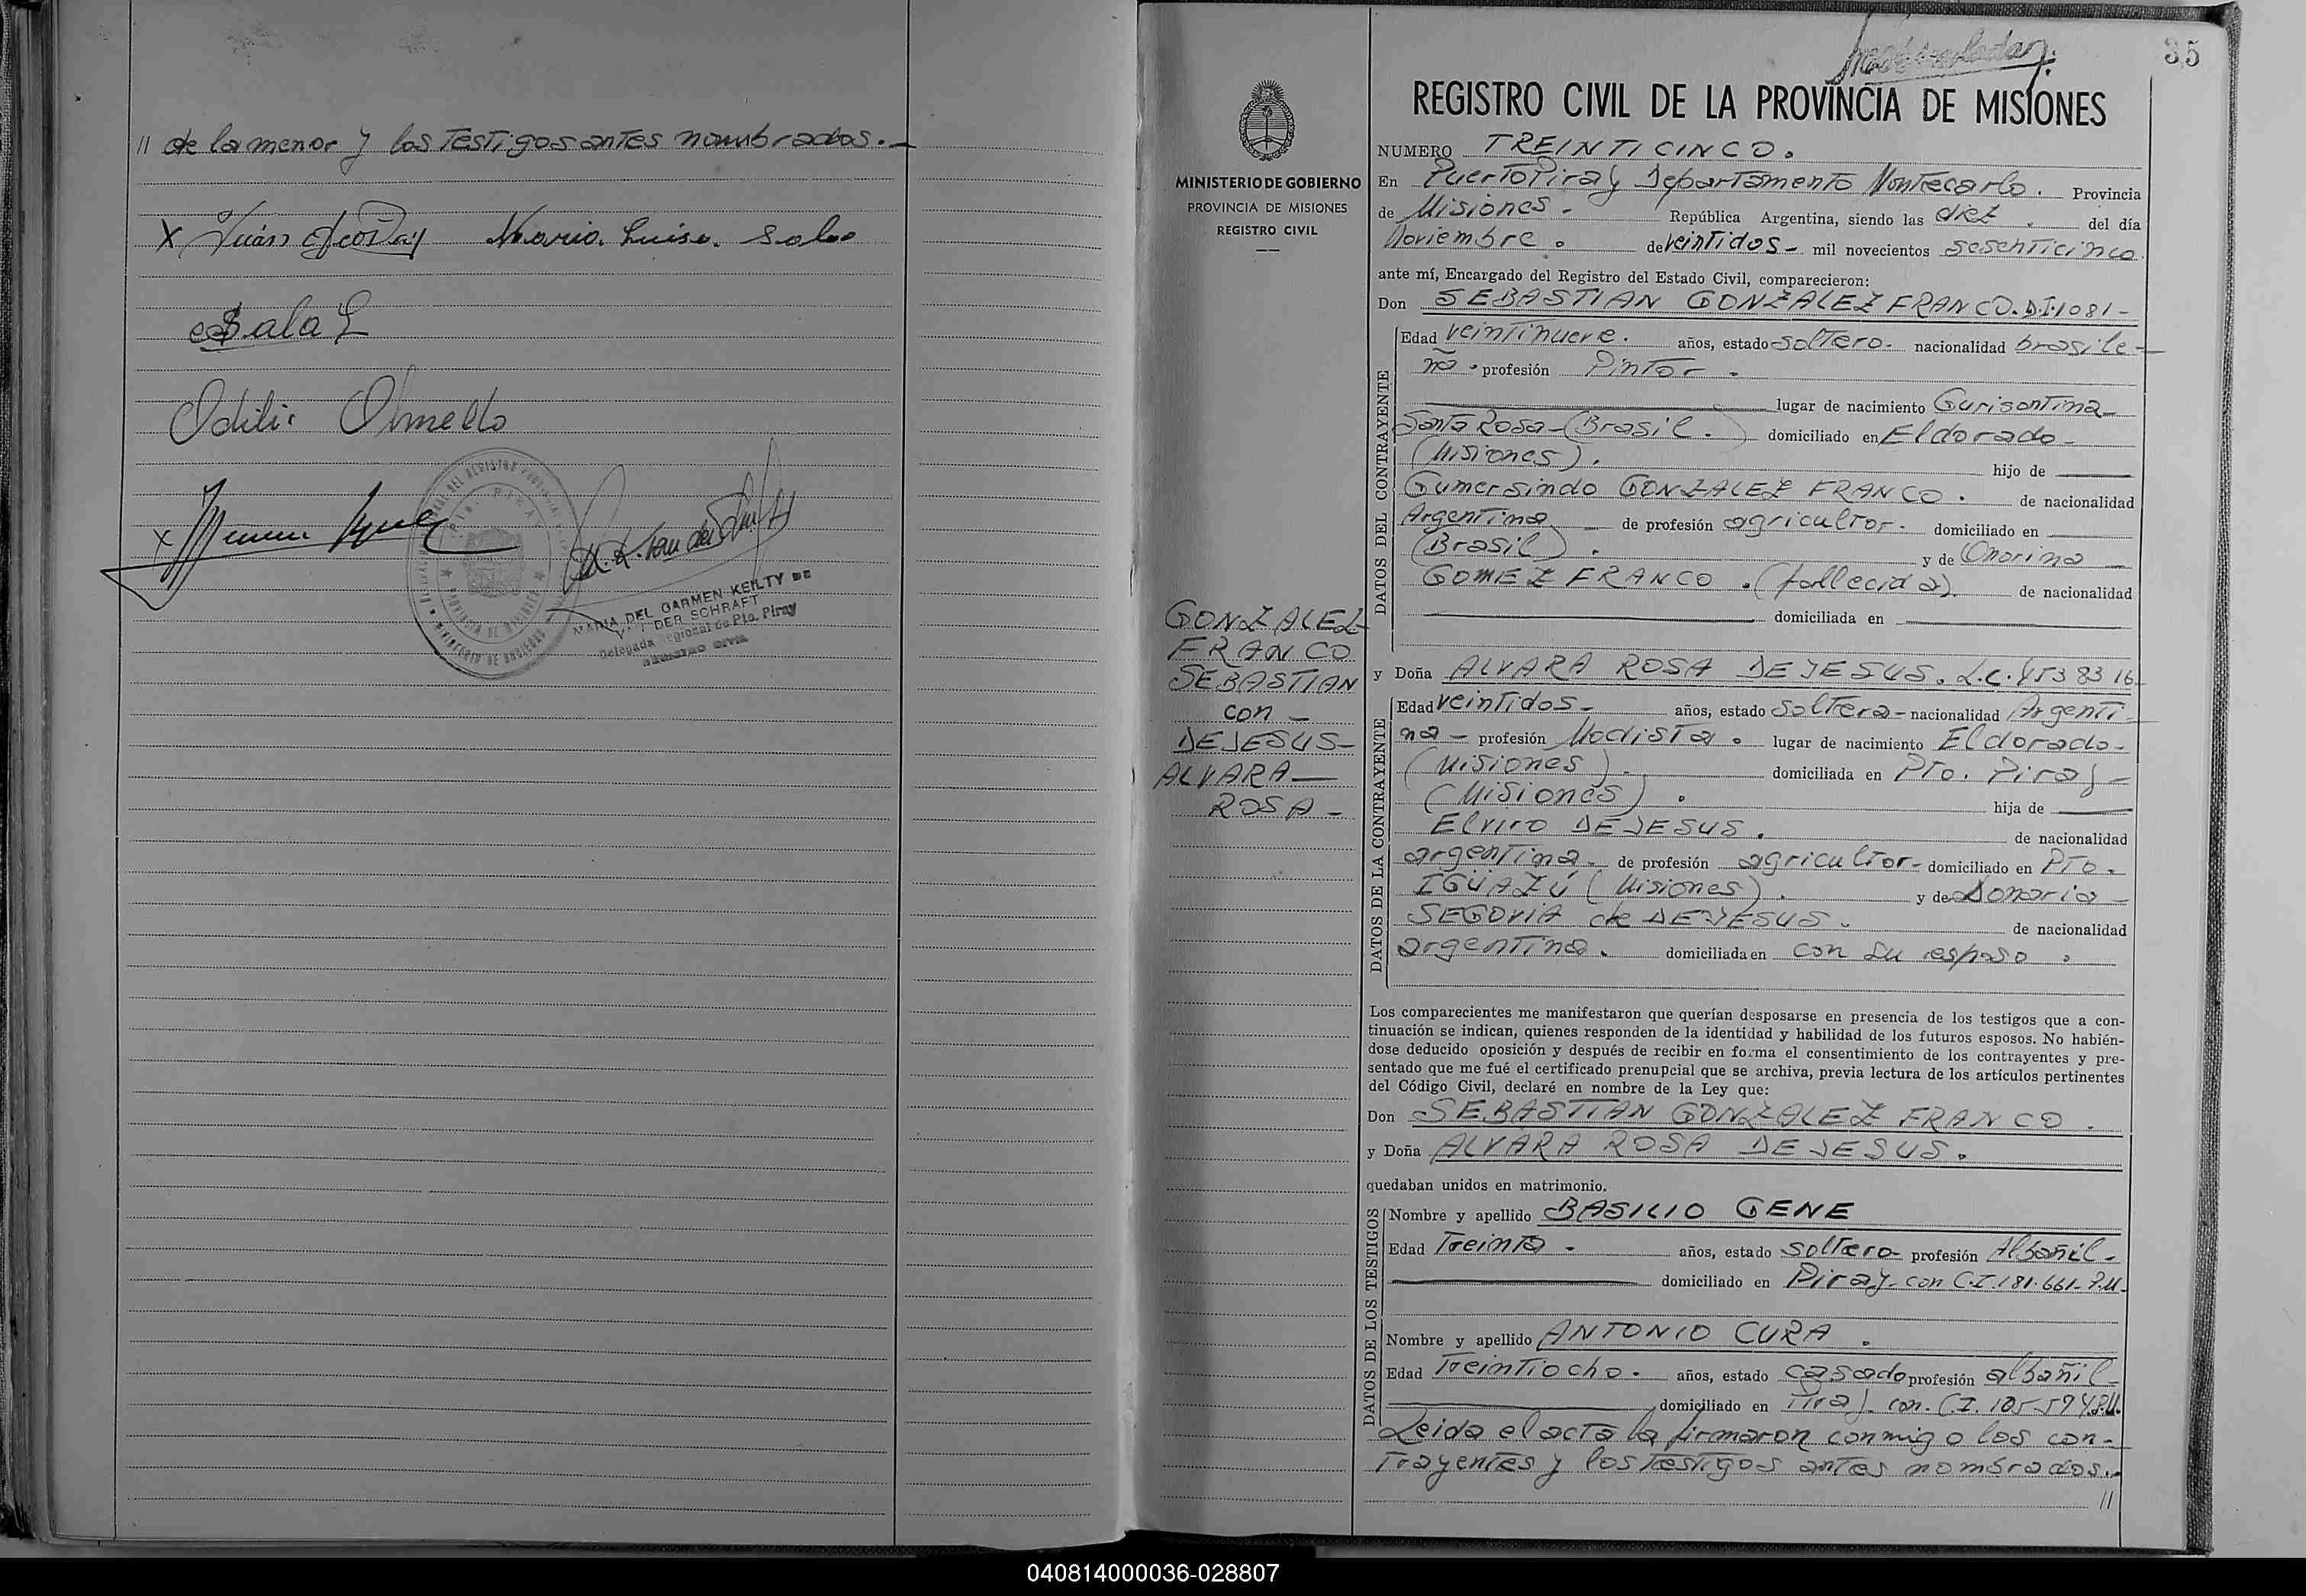 // de la menor y los Testigos antes nombrados.-
X Juán Acosta Maria Luisa Salas
Salas
Odilia Olmedo
MARIA DEL CARMEN KEILTY DE
VAN DER SCHRAFT
Delegada Regional de Pto. Piray
REGISTRO CIVIL
35
REGISTRO CIVIL DE LA PROVINCIA DE MISIONES
MINISTERIO DE GOBIERNO
PROVINCIA DE MISIONES
REGISTRO CIVIL
GONZALEZ
FRANCO
SEBASTIAN
con -
DE JESUS-
ALVARA-
ROSA-
NUMERO TREINTICINCO.
En Puerto Piray Departamento Montecarlo. Provincia
de Misiones.- República Argentina, siendo las diez. del día
Noviembre. de veintidos- mil novecientos sesenticinco.
ante mí, Encargado del Registro del Estado Civil, comparecieron:
Don SEBASTIAN GONZALEZ FRANCO.D.I.1081-
DATOS DEL CONTRAYENTE
Edad veintinueve. años, estado soltero. nacionalidad brasile-
ña. profesión Pintor.
lugar de nacimiento Gurisontina-
Santa Rosa-(Brasil.) domiciliado en Eldorado-
(Misiones). hijo de
Gumersindo GONZALEZ FRANCO. de nacionalidad
Argentina - de profesión agricultor- domiciliado en
(Brasil). y de Onorina
GOMEZ FRANCO.(fallecida). de nacionalidad
domiciliada en
y Doña ALVARA ROSA DE JESUS. L.C.4538316-
DATOS DE LA CONTRAYENTE
Edad veintidos- años, estado Soltera- nacionalidad Argenti-
na- profesión Modista. lugar de nacimiento Eldorado-
(Misiones). domiciliada en Pto. Piray-
(Misiones). hija de
Elviro DE JESUS. de nacionalidad
argentina. de profesión agricultor- domiciliado en Pto.
IGÜAZÚ (Misiones). y de Donaria-
SEGOVIA de DE JESUS. de nacionalidad
argentina. domiciliada en con su esposo.
Los comparecientes me manifestaron que querían desposarse en presencia de los testigos que a con-
tinuación se indican, quienes responden de la identidad y habilidad de los futuros esposos. No habién-
dose deducido oposición y después de recibir en forma el consentimiento de los contrayentes y pre-
sentado que me fué el certificado prenupcial que se archiva, previa lectura de los artículos pertinentes
del Código Civil, declaré en nombre de la Ley que:
Don SEBASTIAN GONZALEZ FRANCO.
y Doña ALVARA ROSA DE JESUS.
quedaban unidos en matrimonio.
DATOS DE LOS TESTIGOS
Nombre y apellido BASILIO GENE
Edad Treinta. años, estado soltero profesión Albañil-
domiciliado en Piray- con C.I.181.661-P.M.
Nombre y apellido ANTONIO CURA.
Edad Treintiocho. años, estado casado profesión albañil-
domiciliado en Piray. con. C.I.
Leida el acta la firmaron conmigo los con-
trayentes y los testigos antes nombrados.-
//
040814000036-028807